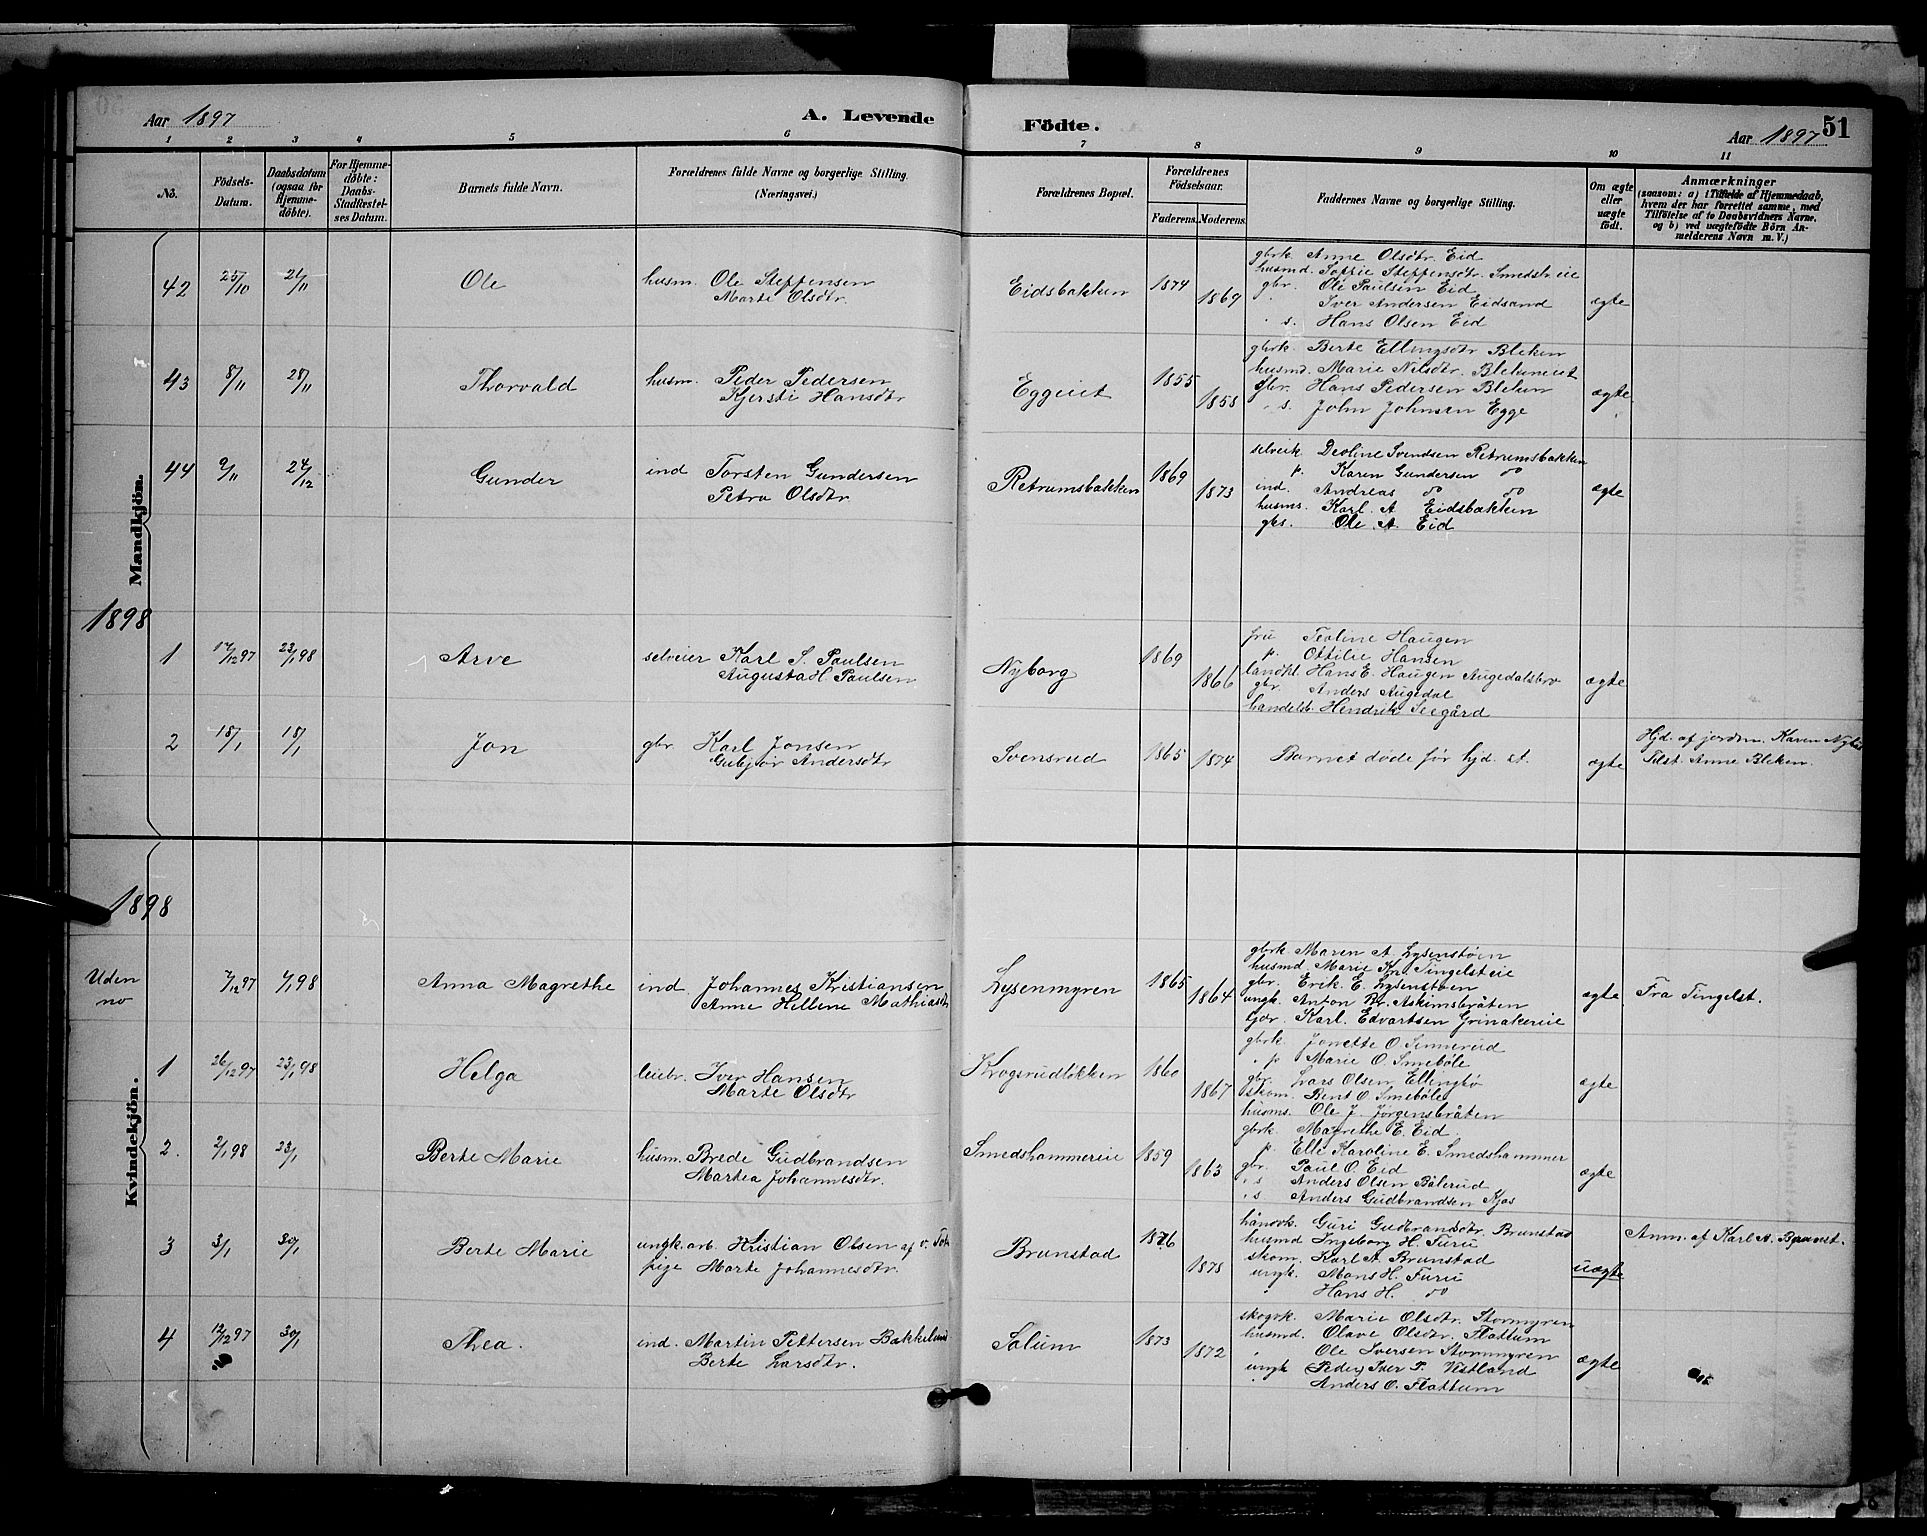 Aar 1897 A. Levende Födte. Aar 1897 51
1 2 3 4 5 6 7 8 9 10 11
No. Födsels-Datum. Daabsdatum (ogsaa for Hjemme-döbte). For Hjemme-döbte: Daabs-Stadfæstel-ses Datum. Barnets fulde Navn. Forældrenes fulde Navne og borgerlige Stilling. (Næringsvei.) Forældrenes Bopæl. Forældrenes Födselsaar. Faderens. Moderens. Faddernes Navne og borgerlige Stilling. Om ægte eller uægte födt. Anmærkninger
(saasom: a) i Tilfælde af Hjemmedaab,
hvem der har forrettet samme, med
Tilföielse af to Daabsvidners Navne,
og b) ved uægtefödte Börn An-
melderens Navn m. V.)
Mandkjön.
42 25/10 21/11 Ole husm. Ole Steffensen Eidsbakken 1874 gbrk. Anne Olsdtr. Eid
Marte Olsdtr. 1869 husmd. Sofie Steffensdtr. ægte
gbr. Ole Paulsen Eid
Iver Andersen Eidsand
s. Hans Olsen Eid
43 8/11 28/11 Thorvald husm. Peder Pedersen Eggeiet 1855 gbrk. Berte Ellingsdtr Bleken
Kjersti Hansdtr 1858 husmd. Marie Nilsdtr. Blekeneiet ægte
gbr. Hans Pedersen Bleken
s. John Johnsen Egge
44 9/11 24/12 Gunder ind Torsten Gundersen Retrumsbakken 1869 selveik. Deoline Svendsen Retrumsbakken
Petra Olsdtr 1873 p. Karen Gundersen do ægte
ind. Andreas do do
husms. Karl A Eidsbakken
gbs. Ole A. Eid
1898
1 17/12 97 23/1 98 Arve selveier Karl S. Paulsen Nyborg 1869 fru Teoline Haugen
Augusta H Paulsen 1866 p. Ottilie Hansen ægte
landhl. Hans E. Haugen Augedalsbro
gbr. Anders Augedal
handelsb. Hendrik Seegård
2 18/1 18/1 Jon gbr. Karl Jonsen Svensrud 1865 Barnet døde før hjd. st. Hjd. af jordm. Karen
Gubjør Andersdtr 1874 ægte Tilst. Anne Bleken.
1898
Kvindekjön.
Uden no 7/12 97 4/1 98 Anna Magrethe ind Johannes Kristiansen Lysenmyren 1865 gbrk Maren A Lysenstøen
Anne Hellene Mathiasdtr 1864 husmd Marie Kr. Tingelsteie ægte Fra Tingelst.
gbr. Erik E. Lysenstøen
ungk. Anton Kr. Askimsbråten
tjdr. Karl. Edvartsen Grinakereie
1 26/12 97 23/1 98 Helga leiebr. Iver Hansen Krogsrudløkken 1860 gbrk Jonette O. Sinnerud
Marte Olsdtr 1867 p Marie O. Smebøle ægte
gbr. Lars Olsen Ellingbø
skom. Bent O. Smebøle
husms. Ole J. Jørgensbråten
2. 2/1 98 23/1 Berte Marie husm. Brede Gudbrandsen Smedshammereie 1859 gbrk Magrethe E. Eid.
Martea Johannesdtr. 1863 p. Elle Karoline E. Smedshammer ægte
gbr. Paul O. Eid
s Anders Olsen Bålerud
s Anders Gudbrandsen Kjos
3 3/1 30/1 Berte Marie ungk. arb. Kristian Olsen af v. Tot. Brunstad 1876 håndvk. Guri Gudbrandsdtr. Brunstad Anm. af Karl A. Brunst.
pige Marte Johannesdtr. 1878 husmd Ingeborg H. Furu uægte
skom. Karl A. Brunstad
ungk. Mons H. Furu
Hans H. do
4 12/12 97 30/1 Thea. ind. Martin Pettersen Bakkelund Solum 1873 skogvk. Marie Olsdtr. Stormyren
Berte Larsdtr. 1872 husmd. Olave Olsdtr. Flattum ægte
Ole Iversen Stormyren
ungk Peder Iver P. Vestland
Anders O. Flattum